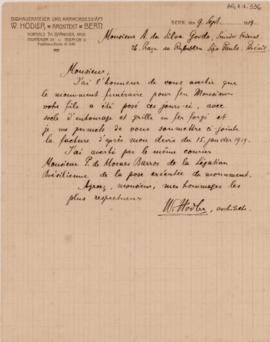 BILDHAUERATELIER UND MARMORGESCHÄFT
W. HODLER * ARCHITEKT * BERN
BERN, le 9 Sept. 1919.
Monsieur A. da Silva Gordo,
Monsieur,
J'ai l'honneur de vous avertir que
le monument funéraire pour feu Monsieur
votre fils a été posé ces jours-ci, avec
socle d'entourage et grille en fer forgé et
je me permets de vous soumettre ci-jointe
la facture d'après mon devis du 15 janvier 1919.
J'ai averti par le même courrier
Monsieur P. de Moraes Barros de la Légation
Brésilienne de la pose exécutée du monument.
Agréez, monsieur, mes hommages les
plus respectueux
W. Hodler, architecte.